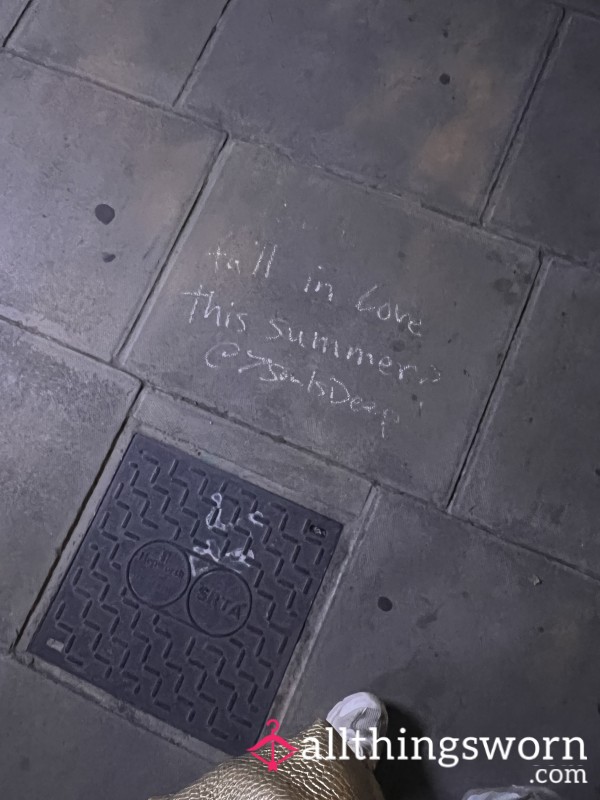 fall in Love
this summer?
@7SoulsDeep
SRTA
allthingsworn
.com